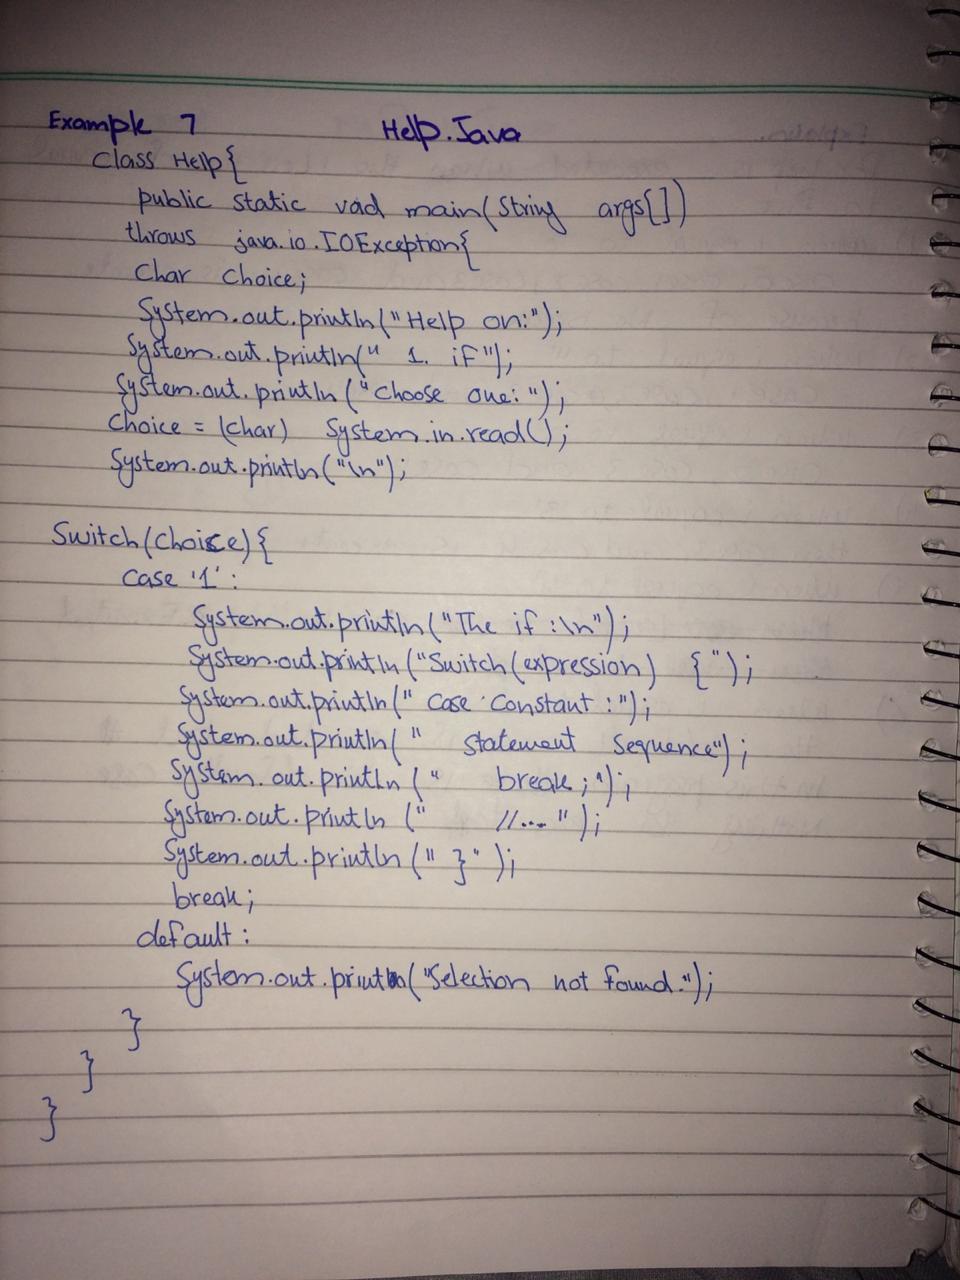 Example 7 Help.Java
class Help{
public static void main(String args[])
throws java.io.IOException{
Char Choice;
System.out.println("Help on:");
System.out.println(" 1. if");
System.out.println("Choose one:");
Choice = (char) System.in.read();
System.out.println("\n");
Switch(Choice){
Case '1':
System.out.println("The if :\n");
System.out.println("Switch(expression) {");
System.out.println(" Case Constant :");
System.out.println(" Statement Sequence");
System.out.println(" break;");
System.out.println(" //...");
System.out.println(" }");
break;
default:
System.out.println("Selection not found.");
}
}
}